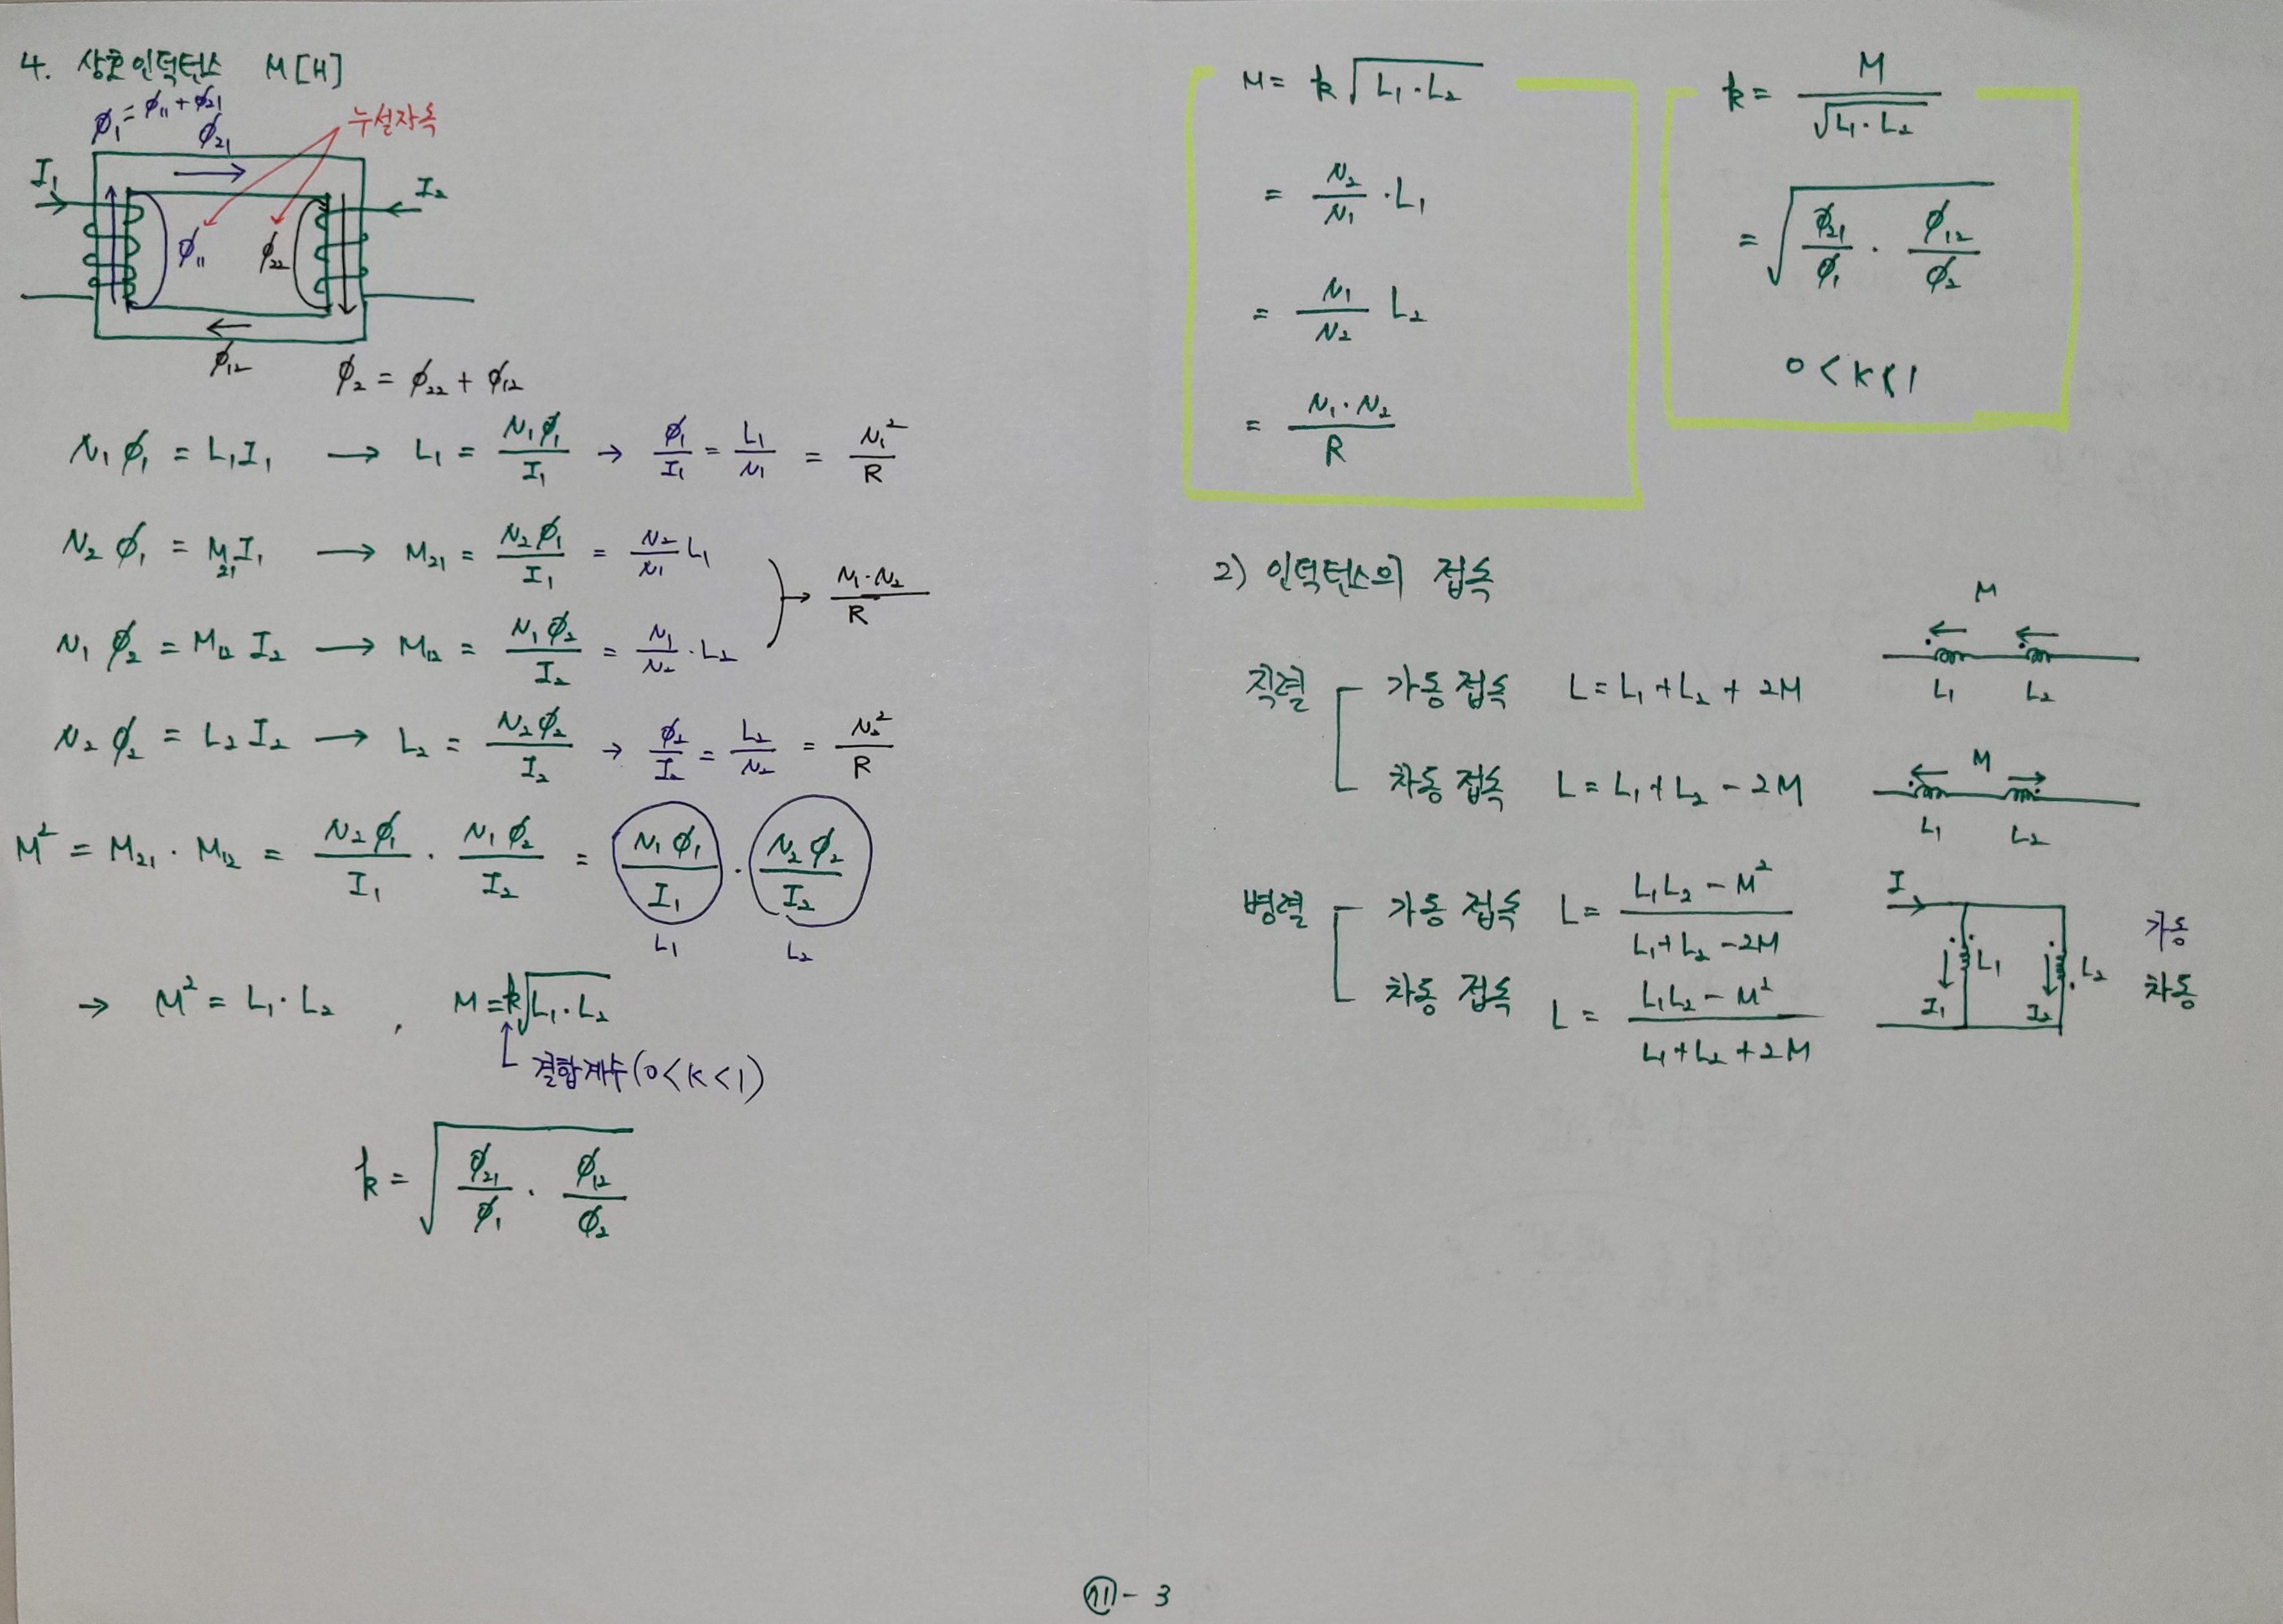 4. 상호인덕턴스 M[H]
ϕ₁ = ϕ₁₁ + ϕ₂₁
ϕ₂₁
누설자속
I₁
I₂
ϕ₁₁
ϕ₂₂
ϕ₁₂
ϕ₂ = ϕ₂₂ + ϕ₁₂
N₁ ϕ₁ = L₁I₁ → L₁ = N₁ϕ₁/I₁ → ϕ₁/I₁ = L₁/N₁ = N₁²/R
N₂ ϕ₁ = M₂₁I₁ → M₂₁ = N₂ϕ₁/I₁ = N₂/N₁ L₁
N₁·N₂/R
N₁ ϕ₂ = M₁₂ I₂ → M₁₂ = N₁ϕ₂/I₂ = N₁/N₂ · L₂
N₂ ϕ₂ = L₂I₂ → L₂ = N₂ϕ₂/I₂ → ϕ₂/I₂ = L₂/N₂ = N₂²/R
M² = M₂₁ · M₁₂ = N₂ϕ₁/I₁ · N₁ϕ₂/I₂ = N₁ϕ₁/I₁ · N₂ϕ₂/I₂
L₁ L₂
→ M² = L₁·L₂ , M = k√(L₁·L₂)
결합계수(0<k<1)
k = √(ϕ₂₁/ϕ₁ · ϕ₁₂/ϕ₂)
M = k√(L₁·L₂)
= N₂/N₁ · L₁
= N₁/N₂ L₂
= N₁·N₂/R
k = M/√(L₁·L₂)
= √(ϕ₂₁/ϕ₁ · ϕ₁₂/ϕ₂)
0<k<1
2) 인덕턴스의 접속
M
직렬 가동 접속 L = L₁ + L₂ + 2M
L₁ L₂
M
차동 접속 L = L₁ + L₂ - 2M
L₁ L₂
병렬 가동 접속 L = (L₁L₂ - M²)/(L₁ + L₂ - 2M)
차동 접속 L = (L₁L₂ - M²)/(L₁ + L₂ + 2M)
I
L₁ L₂
I₁ I₂
가동
차동
- 3